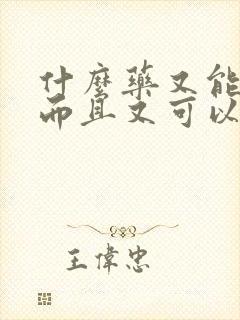 什麼藥又能
而且又可以
王偉忠